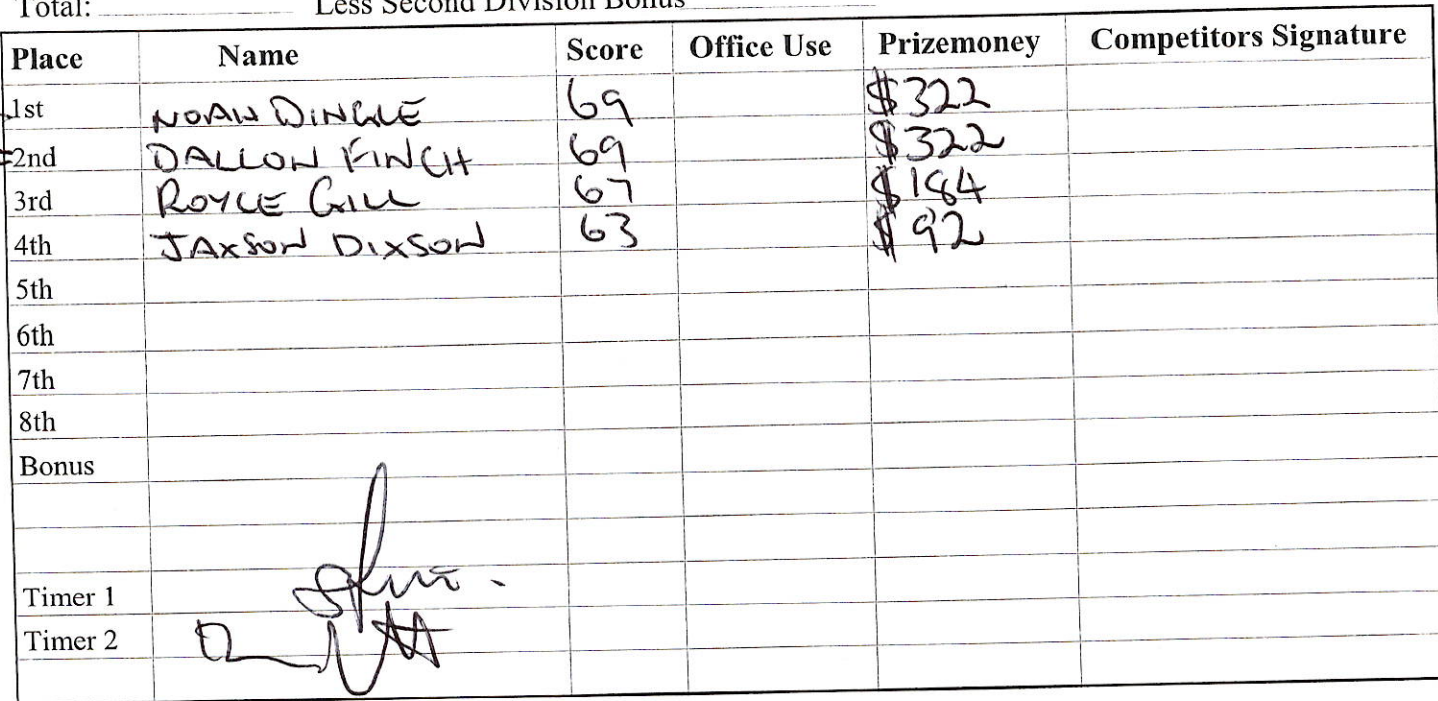 Total: Less Second Division Bonus
Place Name Score Office Use Prizemoney Competitors Signature
1st NOAH DINGLE 69 $322
=2nd DALLON FINCH 69 $322
3rd ROYCE GILL 67 $184
4th JAXSON DIXSON 63 $92
5th
6th
7th
8th
Bonus
Timer 1
Timer 2